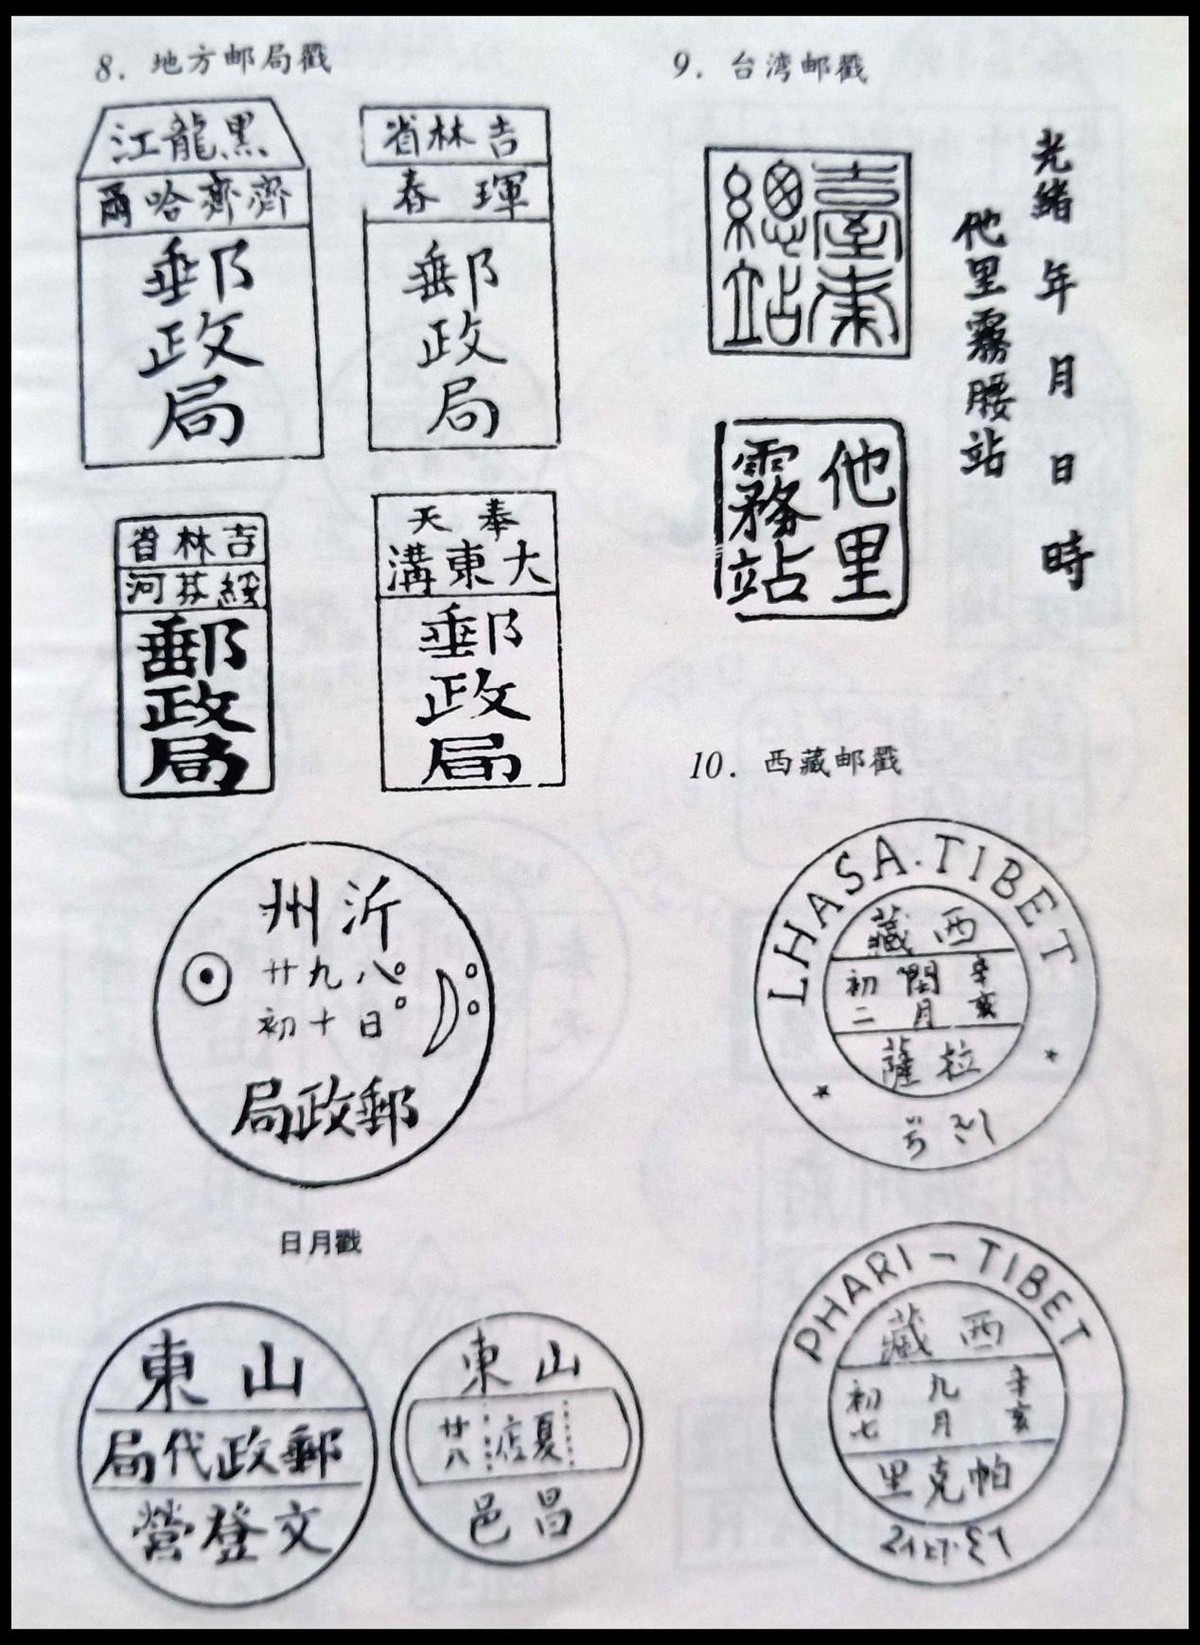 8. 地方邮局戳
黑龍江
齊齊哈爾
郵
政
局
吉林省
琿春
郵
政
局
吉林省
綏芬河
郵
政
局
奉天
大東溝
郵
政
局
沂州
八九廿
日十初
郵政局
日月戳
山東
郵政代局
文登營
山東
夏店
廿八
昌邑
9. 台湾邮戳
臺東
總站
光緒 年 月 日 時
他里霧腰站
他里
霧站
10. 西藏邮戳
LHASA.TIBET
西藏
辛亥
閏月
初二
拉薩
PHARI-TIBET
西藏
辛亥
九月
初七
帕克里